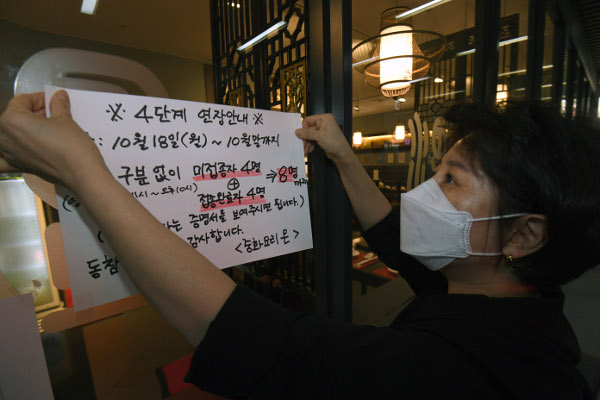 ※ 4단계 연장안내 ※
: 10月 18日(월) ~ 10월말까지
구분 없이 미접종자 4명
⊕ → 8명까지
접종완료자 4명
는 증명서를 보여주시면 됩니다.)
감사합니다.
동참
<중화요리 은>